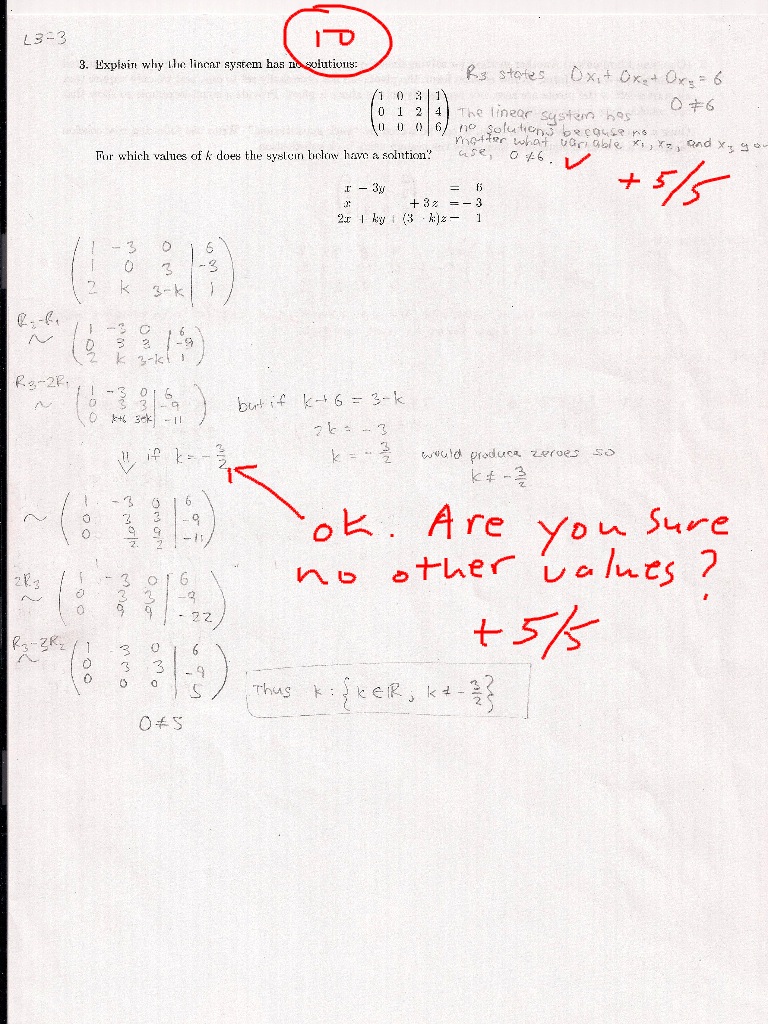 L3=3
10
3. Explain why the linear system has no solutions:
R3 states 0x₁ + 0x₂ + 0x₃ = 6
0 ≠ 6
(1 0 3 | 1)
(0 1 2 | 4)
(0 0 0 | 6)
The linear system has
no solutions because no
matter what variable x₁, x₂, and x₃ you
use, 0 ≠ 6. ✓
+ 5/5
For which values of k does the system below have a solution?
x − 3y = 6
x + 3z = −3
2x + ky + (3 − k)z = 1
(1 −3 0 | 6)
(1 0 3 | −3)
(2 k 3−k | 1)
R₂−R₁
~
(1 −3 0 | 6)
(0 3 3 | −9)
(2 k 3−k | 1)
R₃−2R₁
~
(1 −3 0 | 6)
(0 3 3 | −9)
(0 k+6 3−k | −11)
but if k+6 = 3−k
2k = −3
k = −3/2 would produce zeroes so
k ≠ −3/2
⇓ if k = −3/2
~
(1 −3 0 | 6)
(0 3 3 | −9)
(0 9/2 9/2 | −11)
ok. Are you sure
no other values?
+ 5/5
2R₃
~
(1 −3 0 | 6)
(0 3 3 | −9)
(0 9 9 | −22)
R₃−3R₂
~
(1 3 0 | 6)
(0 3 3 | −9)
(0 0 0 | 5)
Thus k : {k ∈ ℝ, k ≠ −3/2}
0 ≠ 5